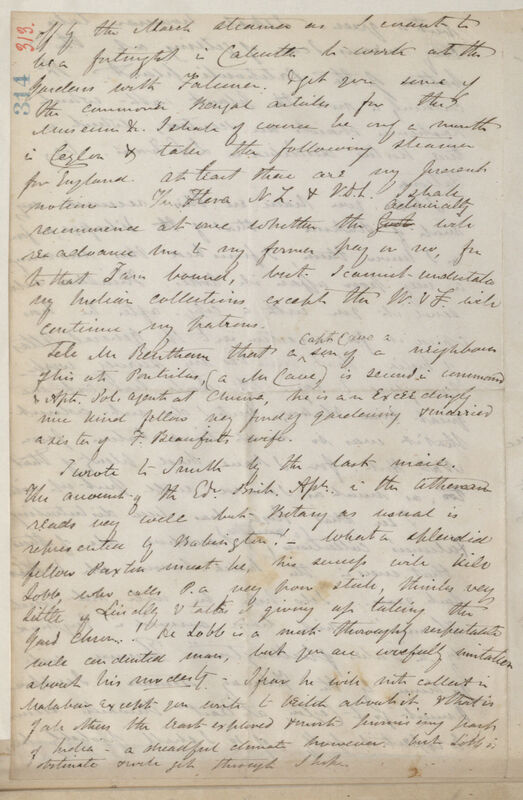 313.
314
if by the March steamer as I want to
be a fortnight in Calcutta to work at the
Gardens with Falconer. & get you some of
the commoner Bengal articles for the
Museum &c. I shall of course be only a month
in Ceylon & take the following steamer
for England. at least these are my present
notions The Flora N.Z. & V.D.L. I shall
recommence at once whether the Admiralty will
readvance me to my former pay or no, for
to that I am bound, but I cannot undertake
my Indian collections except the W. & F. will
continue my patrons.
Tell Mr Bentham that a Capt Cave a son of a neighbour
of his at Pontrilas, (a Mr Cave) is second in command
& Asst. Pol. agent at Chunia, he is an exceedingly
nice kind fellow very fond of gardening & married
a sister of F. Beaufort's wife.
I wrote to Smith by the last mail.
The account of the Ed. Brit. Assn. in the Athenaeum
reads very well but Botany as usual is
represented by Babington! — What a splendid
fellow Paxton must be, his swamp will kill
Lobb, who calls P. a very poor stick, thinks very
little of Lindley & talks of giving up taking the
Gard Chron.! The Lobb is a most thoroughly respectable
well conducted man, but you are woefully mistaken
about his modesty — I fear he will not collect in
Malabar except you write to Veitch about it & that is
of all others the least explored & most promising part
of India — a dreadful climate however. but Lobb is
obstinate & will get through I hope.